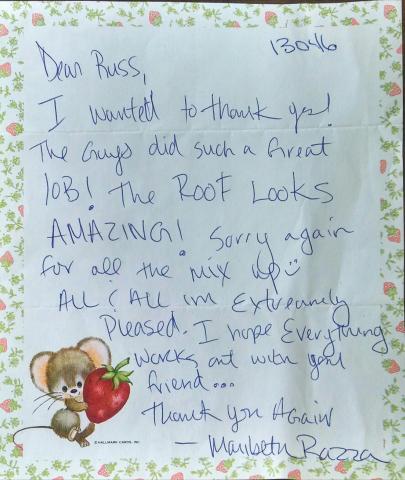 13046
Dear Russ,
I wanted to thank ya!
The Guys did such a Great
JOB! The ROOF LOOKS
AMAZING! Sorry again
for all the mix up
All & All im Extreamly
Pleased. I hope Everything
works out with your
friend...
Thank you Again
- Maribeth Razza
©HALLMARK CARDS, INC.